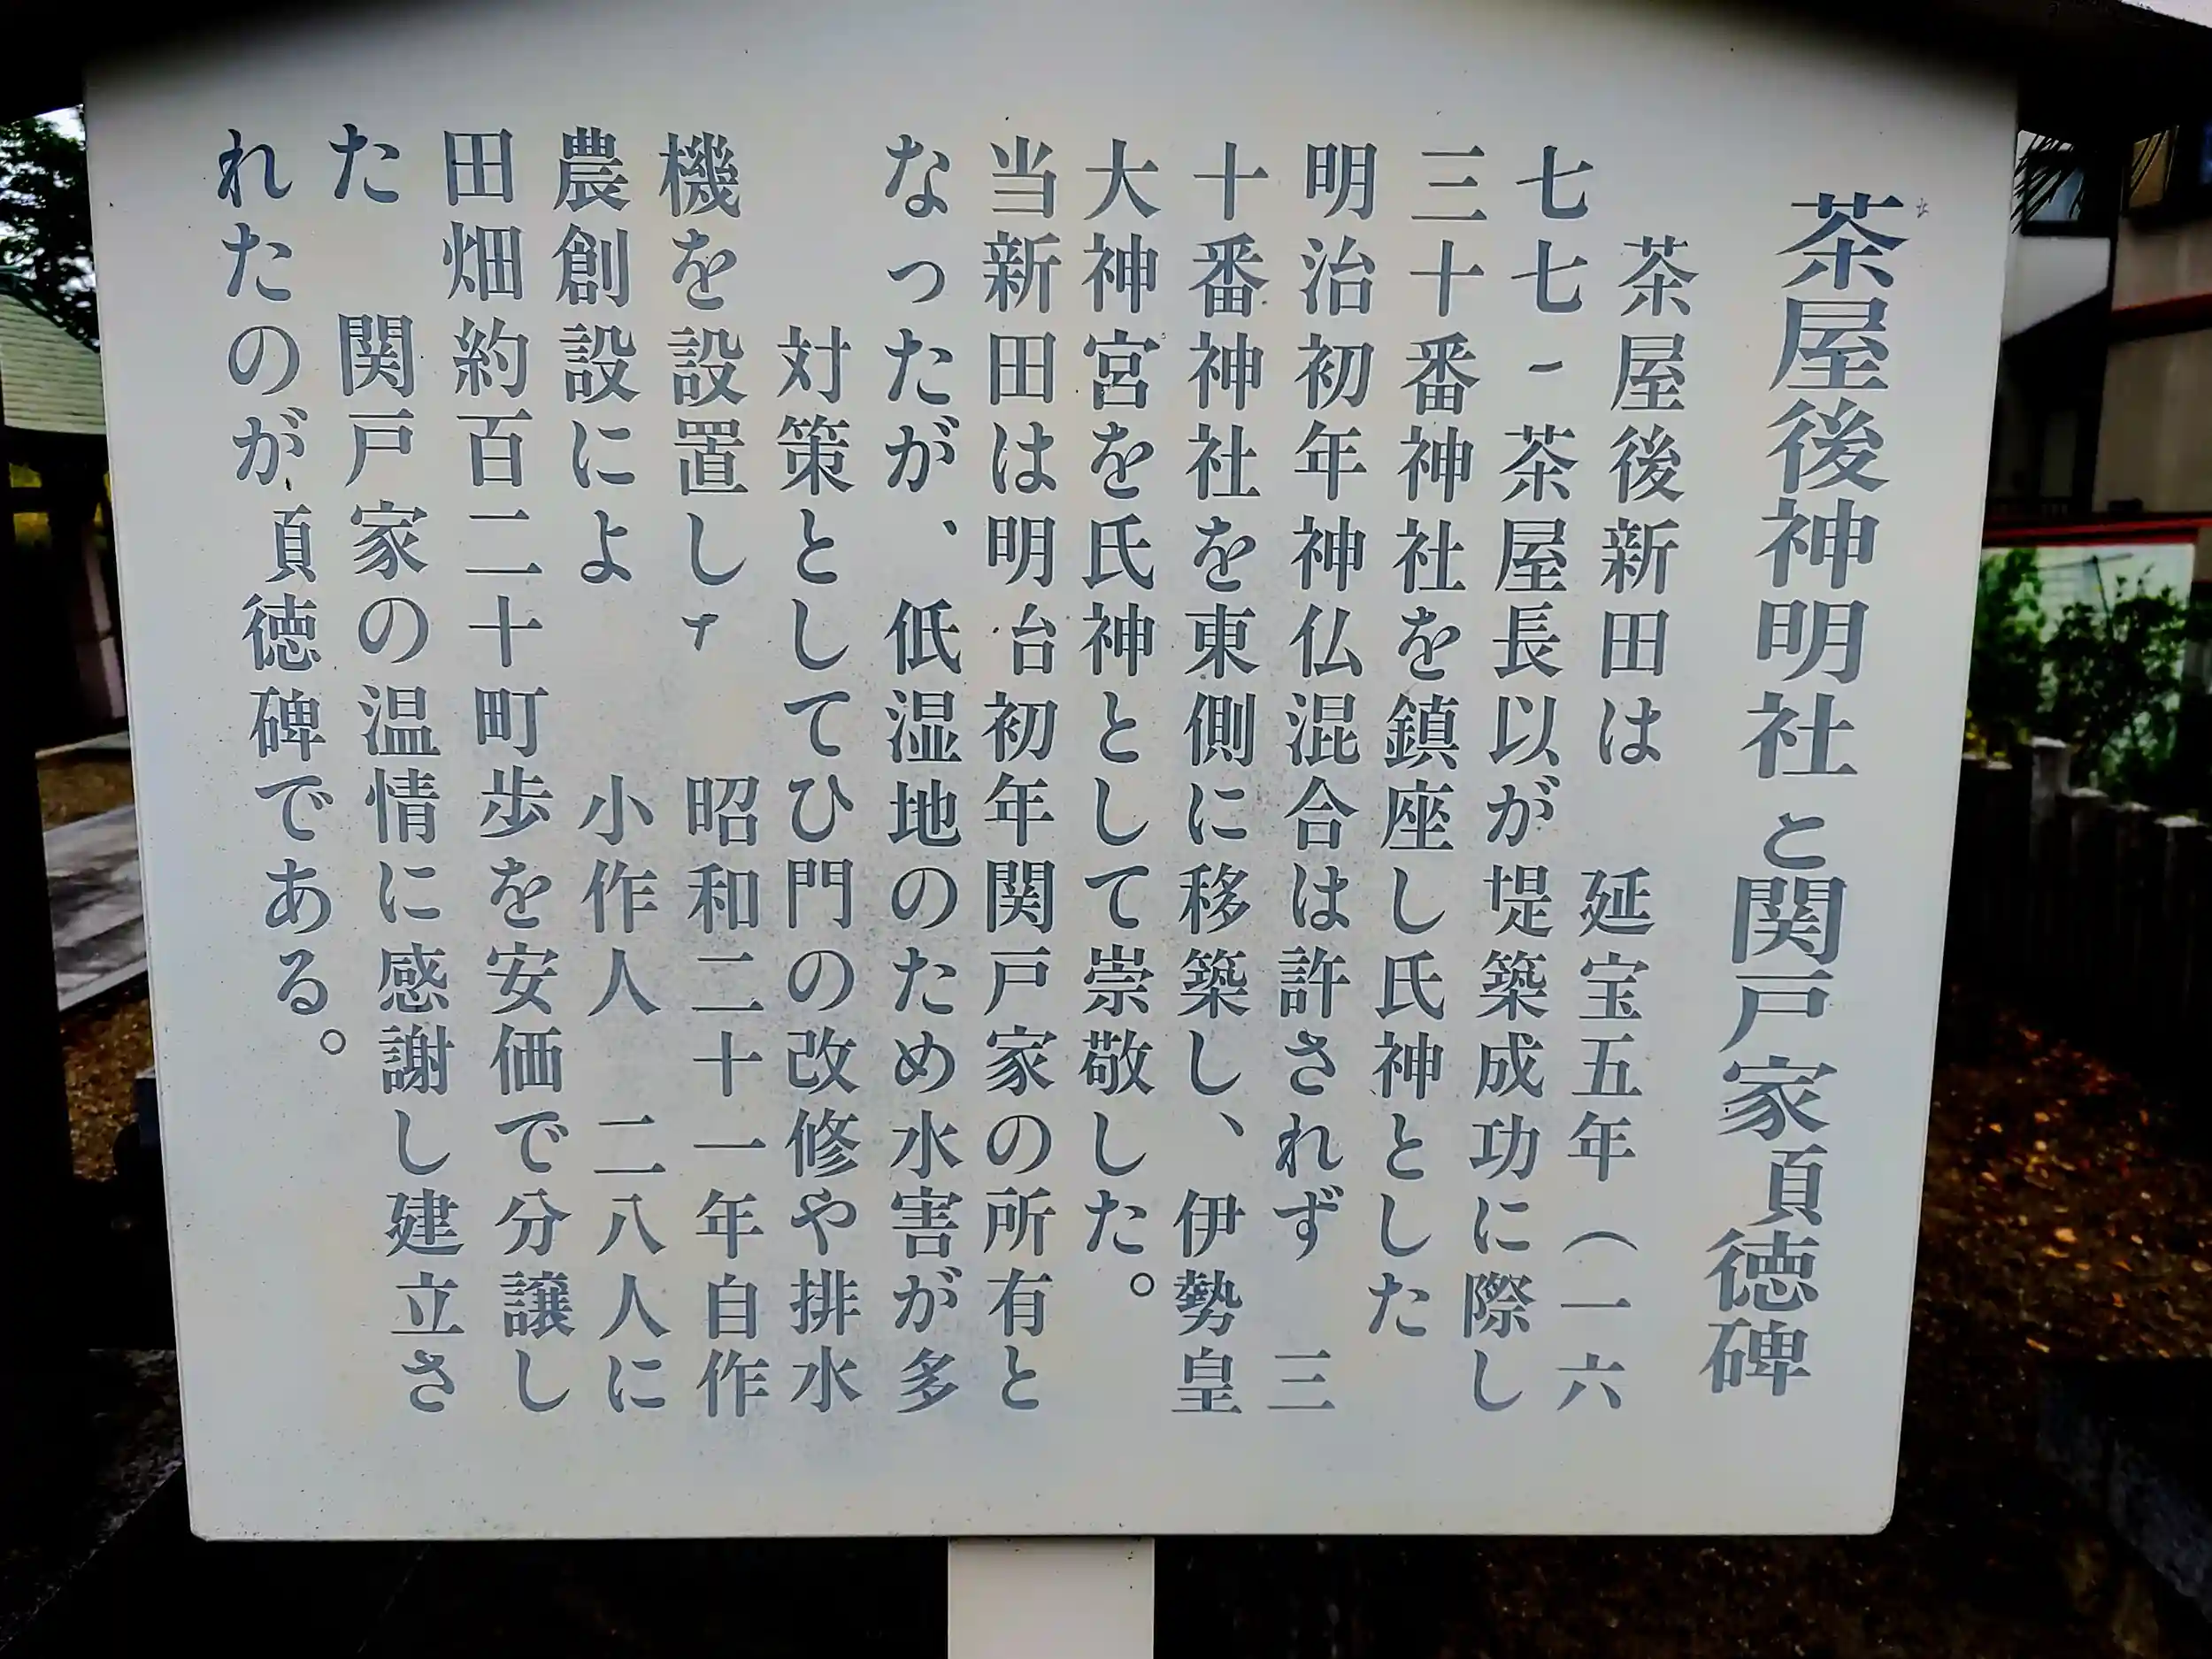 茶屋後神明社と関戸家頁徳碑
茶屋後新田は 延宝五年（一六
七七 茶屋長以が堤築成功に際し
三十番神社を鎮座し氏神とした
明治初年神仏混合は許されず 三
十番神社を東側に移築し、伊勢皇
大神宮を氏神として崇敬した。
当新田は明台初年関戸家の所有と
なったが、低湿地のため水害が多
対策としてひ門の改修や排水
機を設置し 昭和二十一年自作
農創設によ 小作人 二八人に
田畑約百二十町歩を安価で分譲し
た 関戸家の温情に感謝し建立さ
れたのが 頁徳碑である。